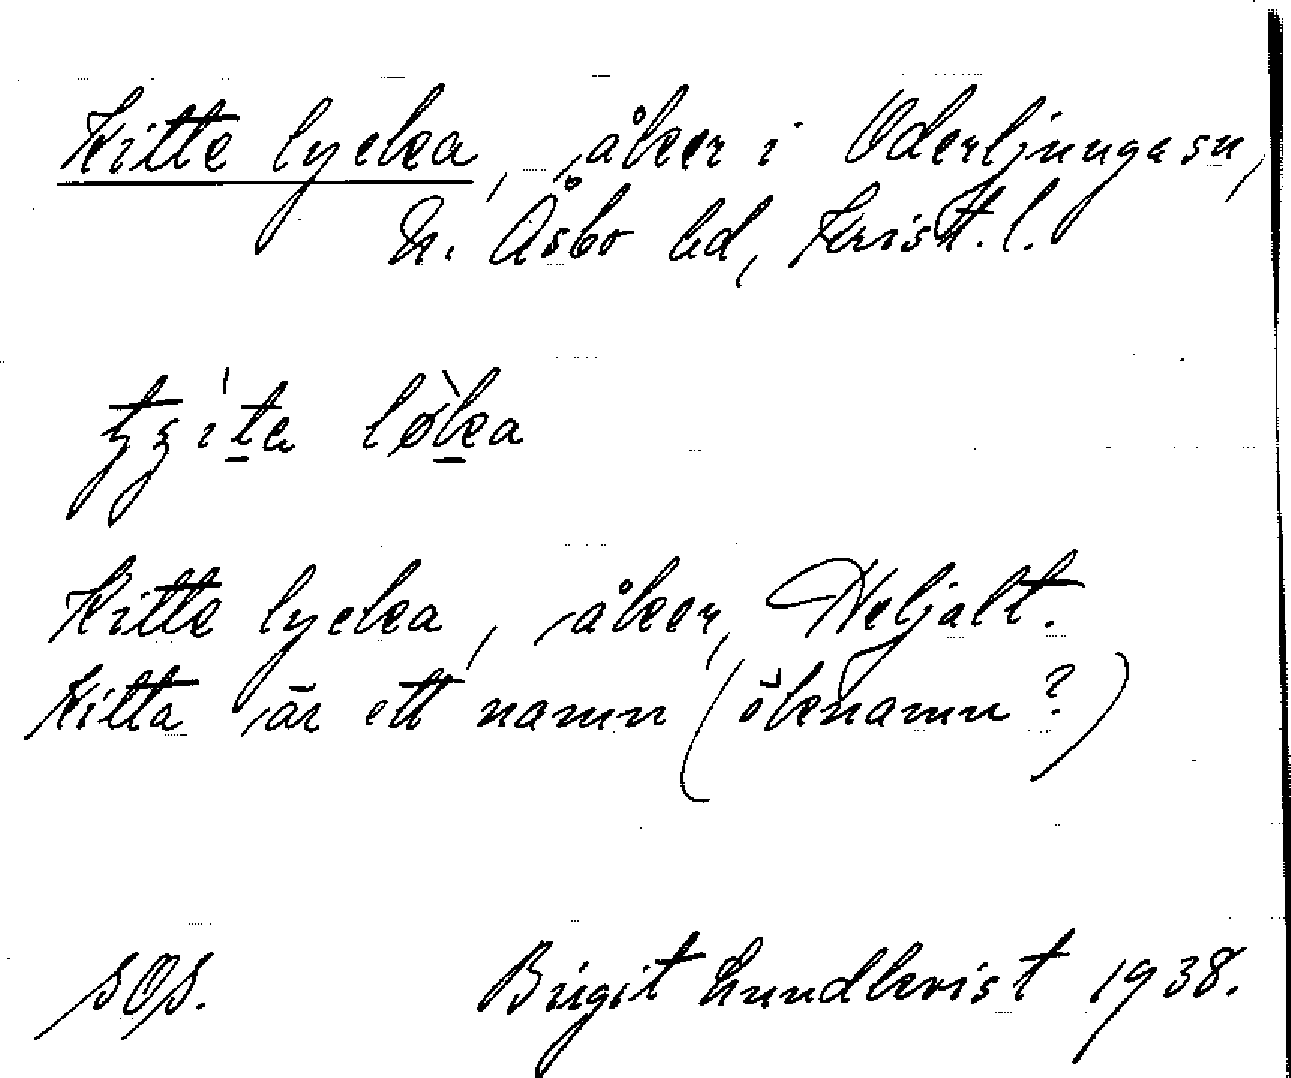 Kitte lycka, åker i Oderljunga sn,
N. Åsbo hd, Krist. l.
Kitte lycka, åker, Weljalt.
Kitta är ett namn (öknamn?)
SOS. Birgit Lundkvist 1938.